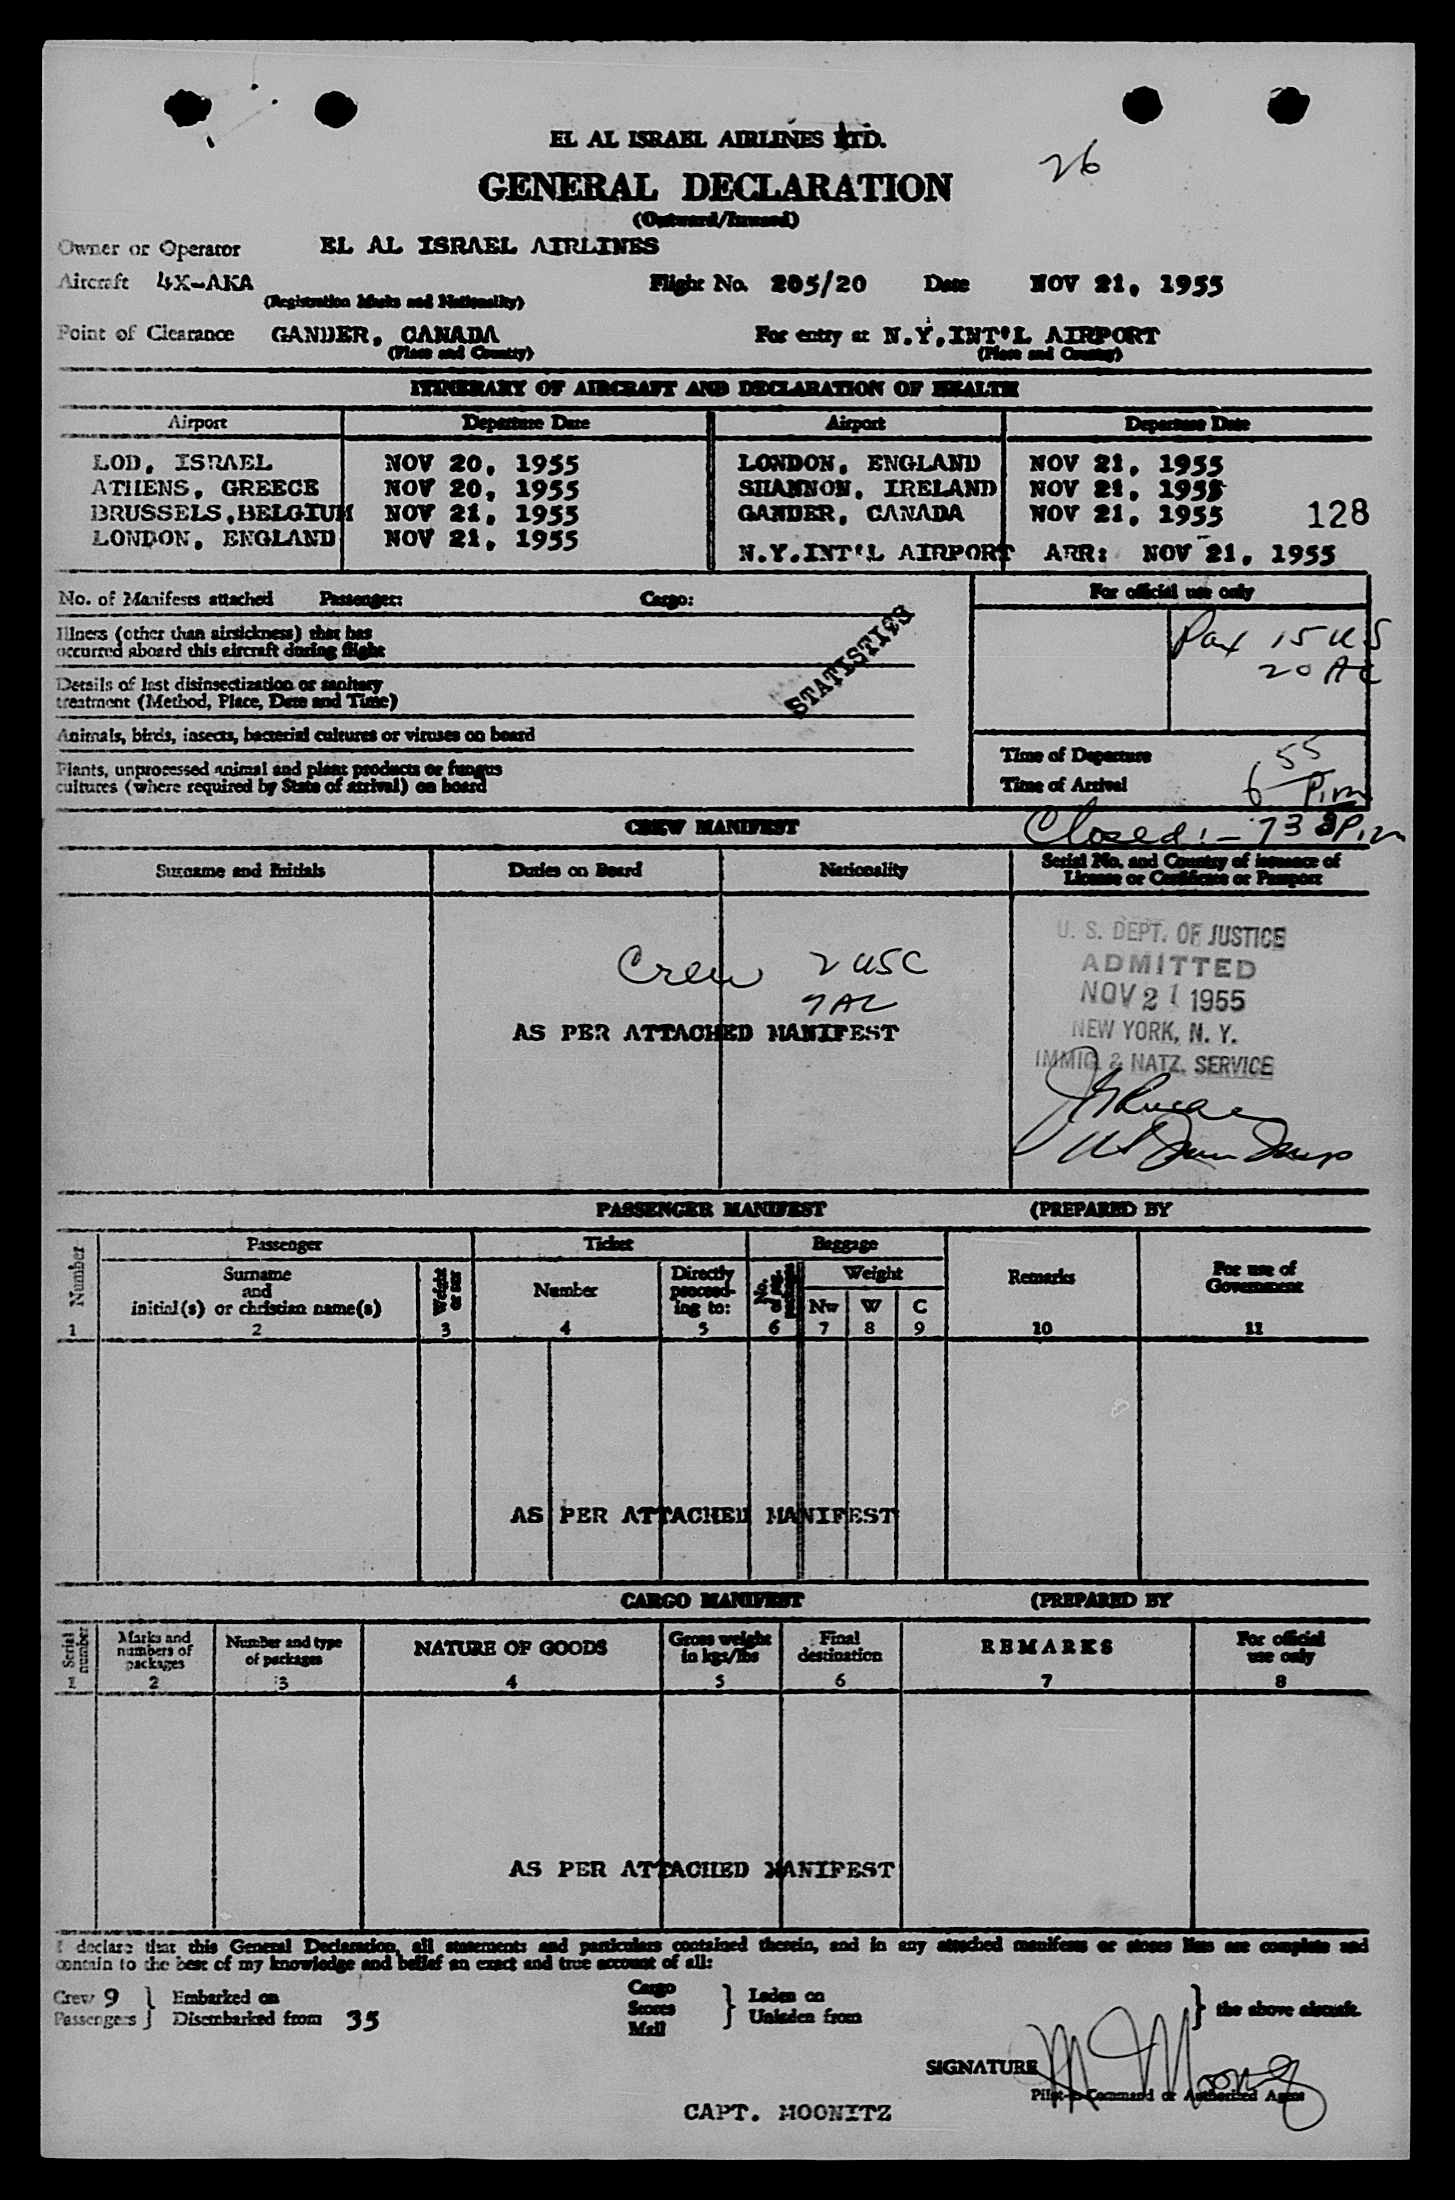 EL AL ISRAEL AIRLINES LTD.
26
GENERAL DECLARATION
(Outward/Inward)
Owner or Operator EL AL ISRAEL AIRLINES
Aircraft 4X-AKA Flight No. 205/20 Date NOV 21, 1955
(Registration Marks and Nationality)
Point of Clearance GANDER, CANADA For entry at N.Y.INT'L AIRPORT
(Place and Country) (Place and Country)
ITINERARY OF AIRCRAFT AND DECLARATION OF HEALTH
Airport Departure Date Airport Departure Date
LOD, ISRAEL NOV 20, 1955 LONDON, ENGLAND NOV 21, 1955
ATHENS, GREECE NOV 20, 1955 SHANNON, IRELAND NOV 21, 1955
BRUSSELS,BELGIUM NOV 21, 1955 GANDER, CANADA NOV 21, 1955 128
LONDON, ENGLAND NOV 21, 1955 N.Y.INT'L AIRPORT ARR: NOV 21, 1955
No. of Manifests attached Passenger: Cargo: For official use only
Illness (other than airsickness) that has
occurred aboard this aircraft during flight
Pax 15 US
20 AC
STATISTICS
Details of last disinsectization or sanitary
treatment (Method, Place, Date and Time)
Animals, birds, insects, bacterial cultures or viruses on board
Plants, unprocessed animal and plant products or fungus
cultures (where required by State of arrival) on board
Time of Departure
Time of Arrival 6 55 P.m
CREW MANIFEST Closed:- 73 P.m
Surname and Initials Duties on Board Nationality Serial No. and Country of issuance of
License or Certificate or Passport
U. S. DEPT. OF JUSTICE
ADMITTED
NOV 21 1955
NEW YORK, N. Y.
IMMIG. & NATZ. SERVICE
Crew 2 USC
7 AC
AS PER ATTACHED MANIFEST
PASSENGER MANIFEST (PREPARED BY
Number Passenger Ticket Baggage Remarks For use of
Government
Surname
and
initial(s) or christian name(s)
Weight
Number Directly
proceed-
ing to:
No.
Weight
Nw W C
1 2 3 4 5 6 7 8 9 10 11
AS PER ATTACHED MANIFEST
CARGO MANIFEST (PREPARED BY
Serial
number
Marks and
numbers of
packages
Number and type
of packages
NATURE OF GOODS
Gross weight
in kgs/lbs
Final
destination
REMARKS
For official
use only
1 2 3 4 5 6 7 8
AS PER ATTACHED MANIFEST
I declare that this General Declaration, all statements and particulars contained therein, and in any attached manifests or stores lists are complete and
contain to the best of my knowledge and belief an exact and true account of all:
Crew 9 } Embarked on
Passengers } Disembarked from 35
Cargo
Stores
Mail
} Laden on
Unladen from
} the above aircraft.
SIGNATURE M J Moonitz
Pilot-in-Command or Authorized Agent
CAPT. MOONITZ